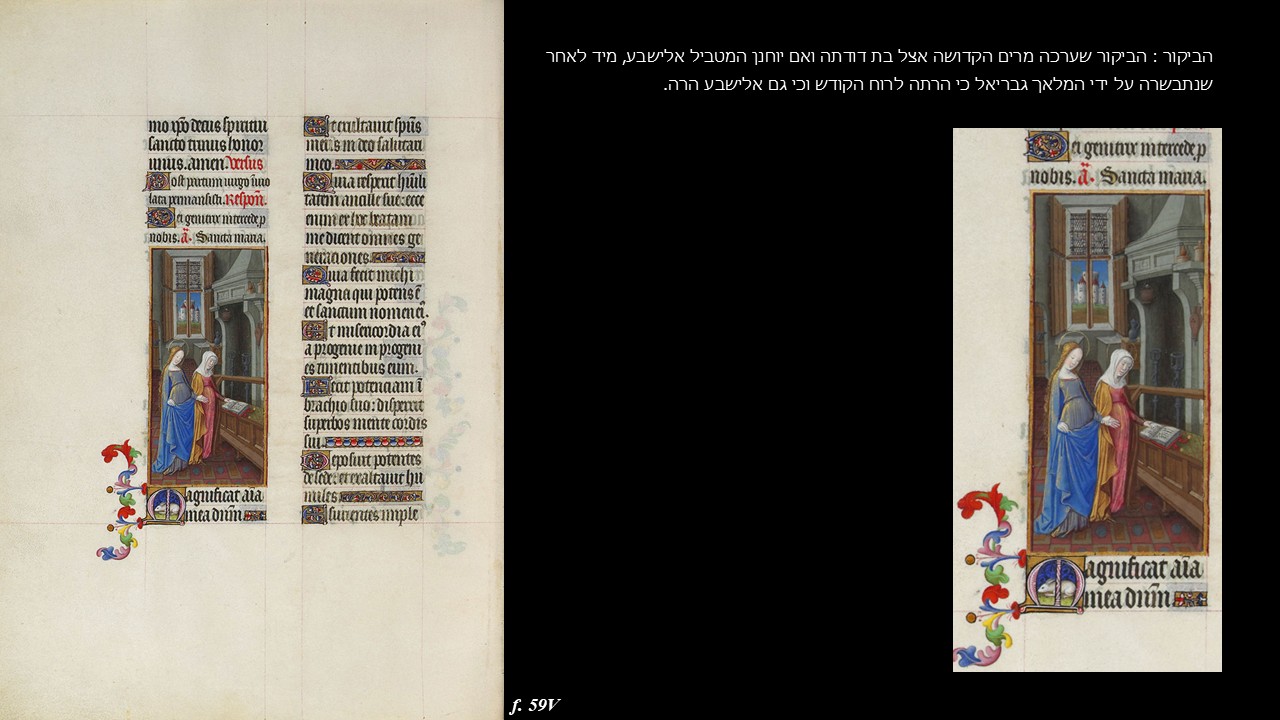 הביקור : הביקור שערכה מרים הקדושה אצל בת דודתה ואם יוחנן המטביל אלישבע, מיד לאחר
שנתבשרה על ידי המלאך גבריאל כי הרתה לרוח הקודש וכי גם אלישבע הרה.
mo xpo decus spiritui
sancto trinus honor
unus. amen. Versus
Post partum virgo invio
lata permansisti. Respon.
Dei genitrix intercede p
nobis. ã. Sancta maria.
Magnificat aia
mea dnm
Et exultavit spus
meus in deo salutari
meo.
Quia respexit humili
tatem ancille sue: ecce
enim ex hoc beatam
me dicent omnes ge
nerationes.
Quia fecit michi
magna qui potens e
et sanctum nomen ei.
Et misericordia ei
a progenie in progeni
es timentibus eum.
Fecit potenciam i
brachio suo: dispersit
superbos mente cordis
sui.
Deposuit potentes
de sede: et exaltavit hu
miles
Esurientes imple
Dei genitrix intercede p
nobis. ã. Sancta maria.
Magnificat aia
mea dnm
f. 59V